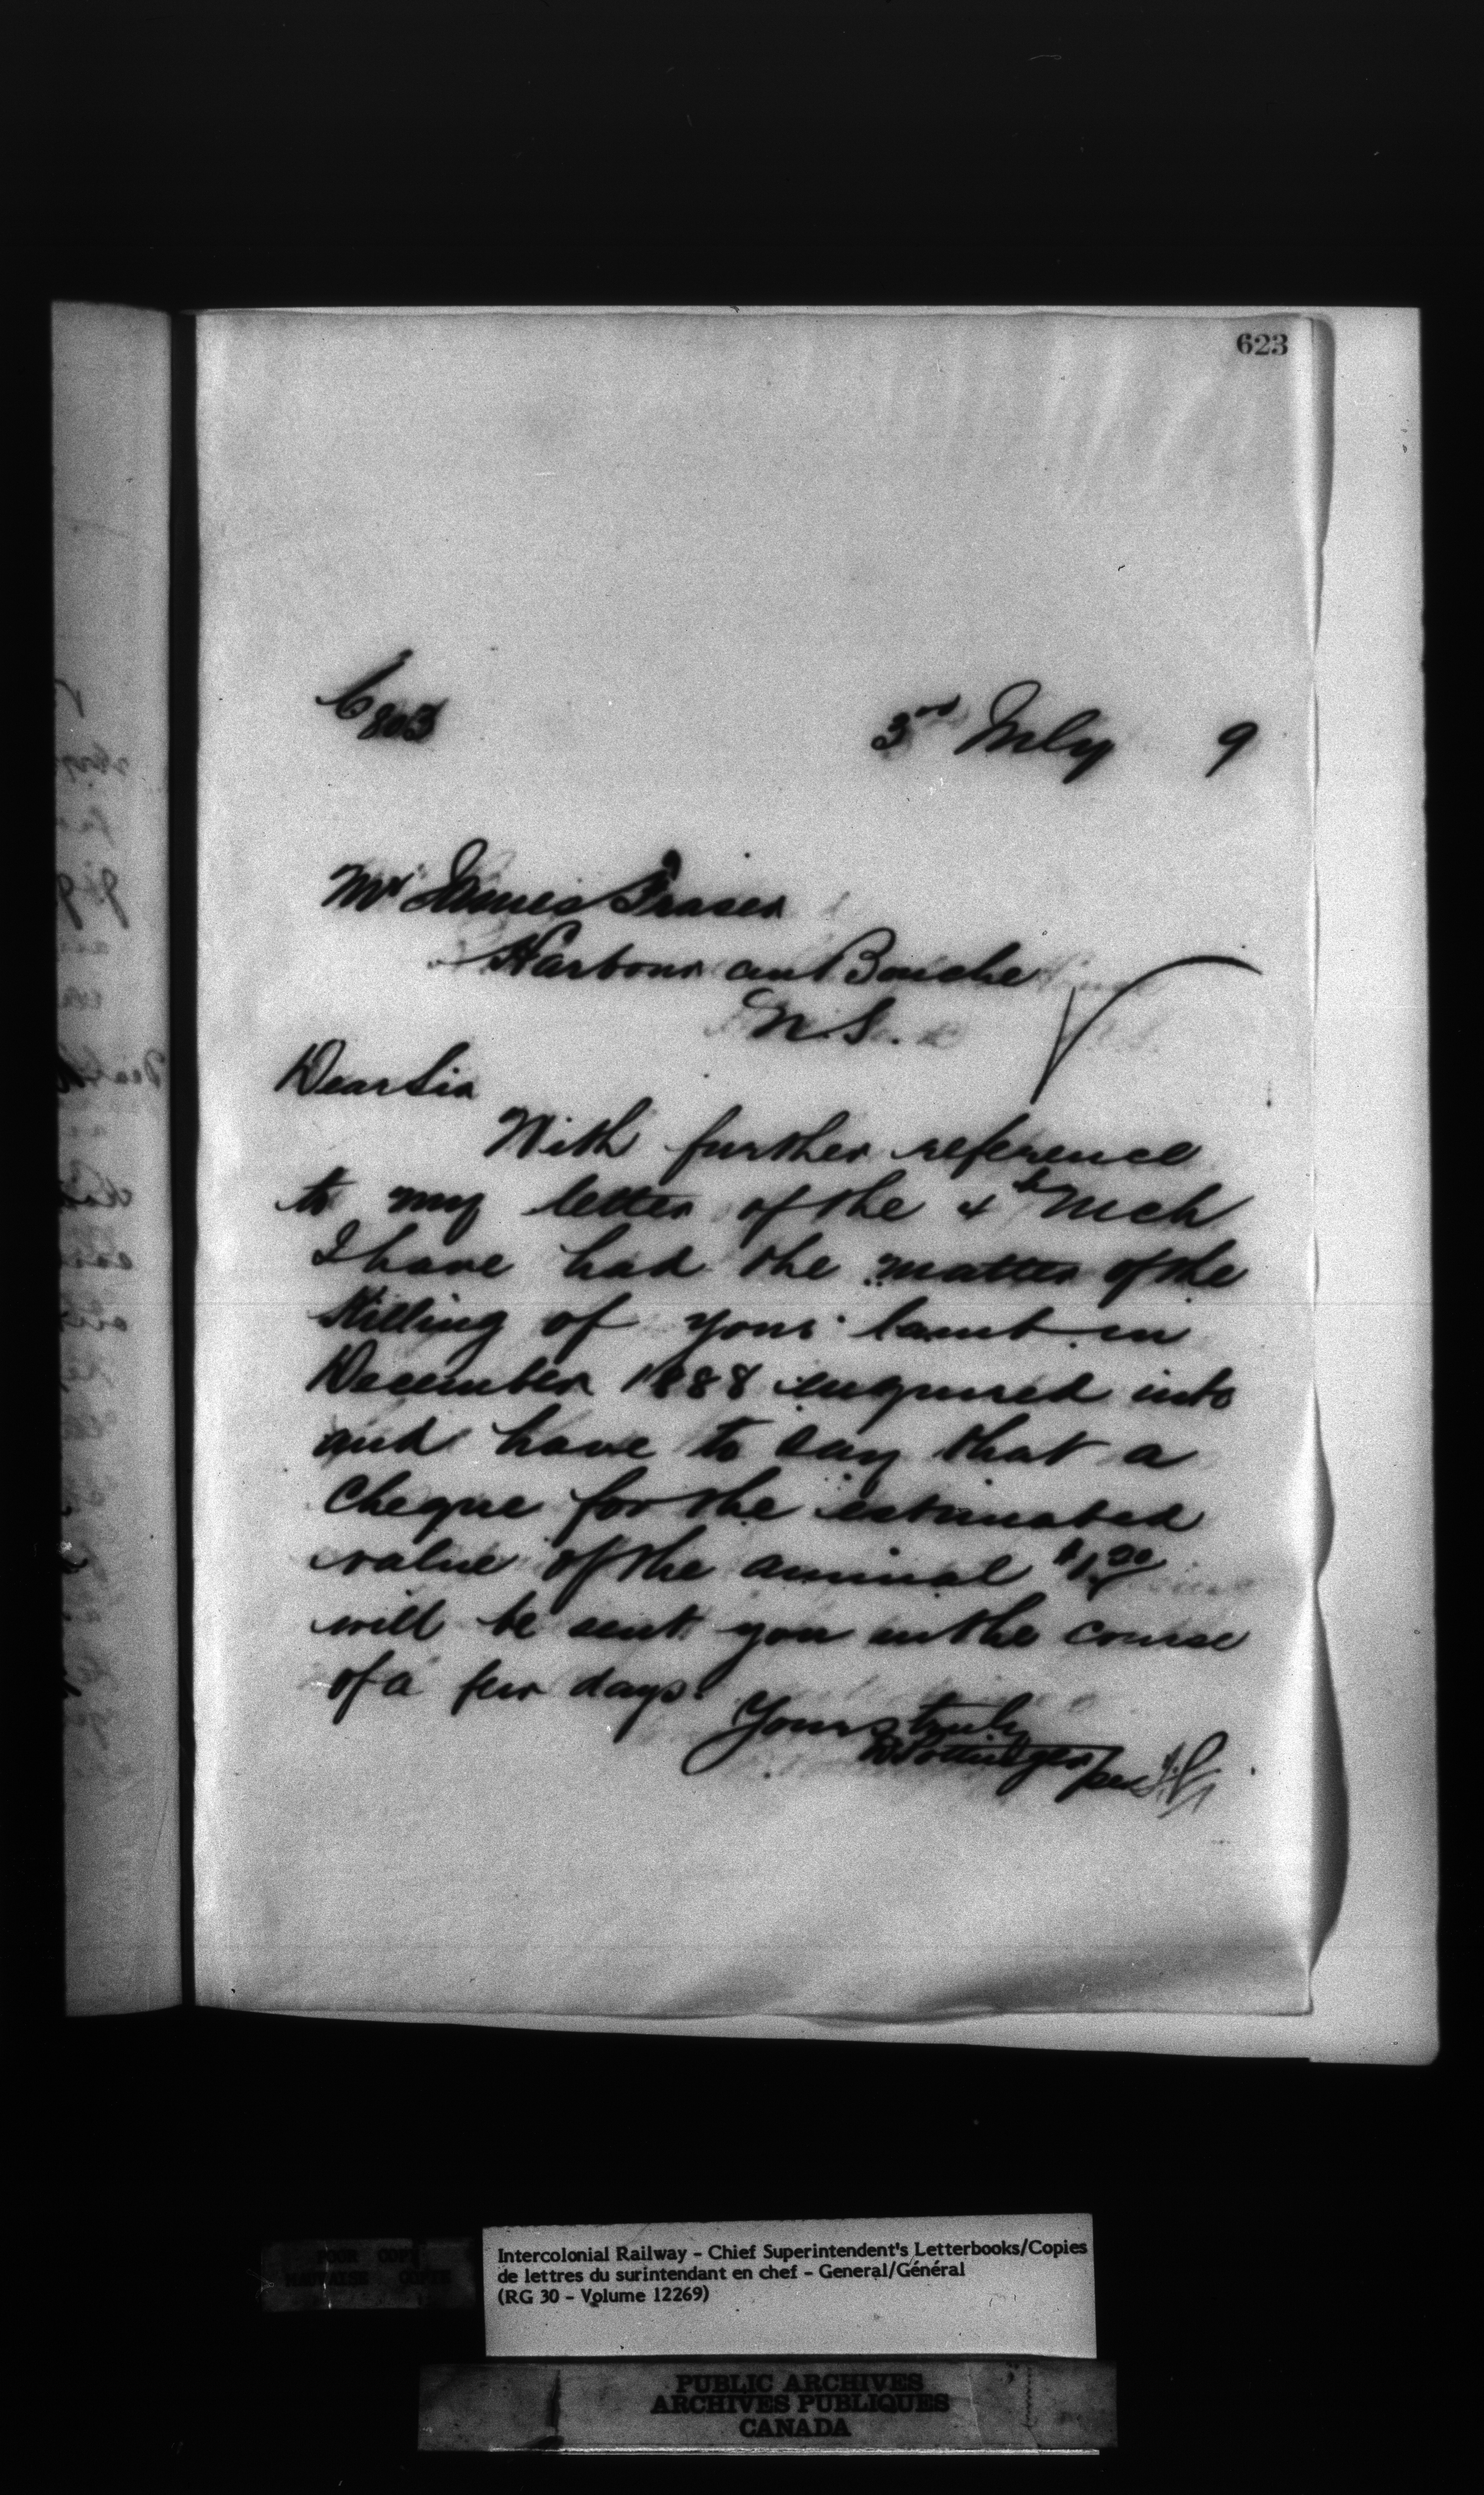 623
C 803
3rd July 9
Mr James Fraser
Harbour au Bouche
N.S.
Dear Sir
With further reference
to my letter of the 4th Mch
I have had the matter of the
killing of your lamb in
December 1888 enquired into
and have to say that a
cheque for the estimated
value of the animal $1.20
will be sent you in the course
of a few days.
Yours truly
D Pottinger
per
POOR COPY
MAUVAISE COPIE
Intercolonial Railway - Chief Superintendent's Letterbooks/Copies
de lettres du surintendant en chef - General/Général
(RG 30 - Volume 12269)
PUBLIC ARCHIVES
ARCHIVES PUBLIQUES
CANADA